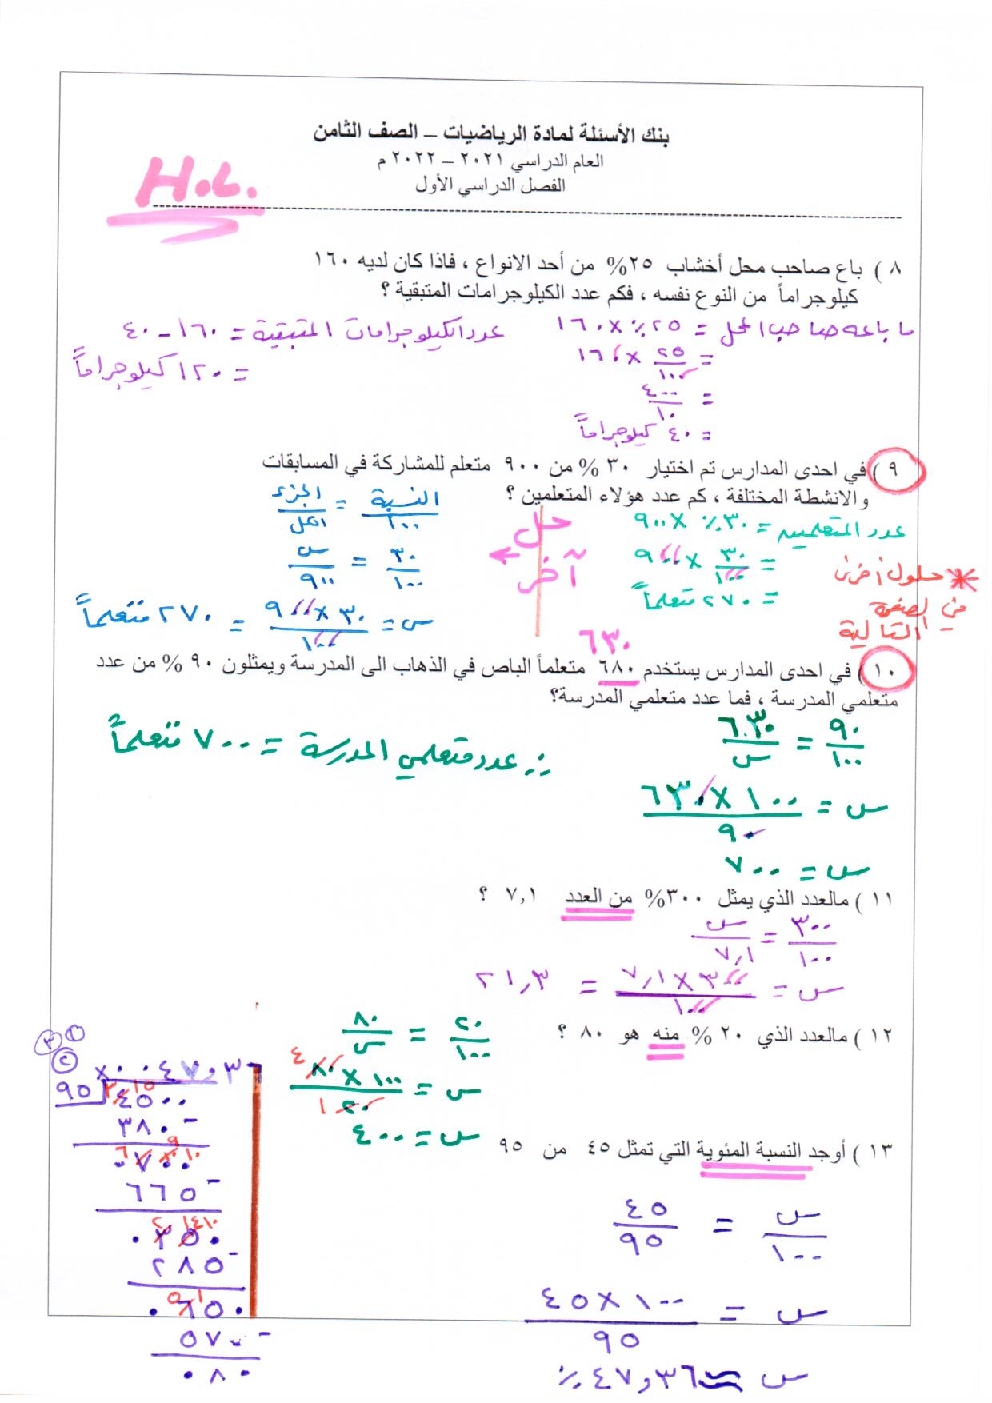 بنك الأسئلة لمادة الرياضيات – الصف الثامن
العام الدراسي ٢٠٢١ – ٢٠٢٢ م
الفصل الدراسي الأول
H.L.
٨ ) باع صاحب محل أخشاب ٢٥% من أحد الانواع ، فاذا كان لديه ١٦٠
كيلوجراماً من النوع نفسه ، فكم عدد الكيلوجرامات المتبقية ؟
ما باعه صاحب المحل = ٢٥٪ × ١٦٠
= ٢٥/١٠٠ × ١٦٠
= ٤٠٠/١٠
= ٤٠ كيلوجراماً
عدد الكيلوجرامات المتبقية = ١٦٠ – ٤٠
= ١٢٠ كيلوجراماً
٩ ) في احدى المدارس تم اختيار ٣٠ % من ٩٠٠ متعلم للمشاركة في المسابقات
والانشطة المختلفة ، كم عدد هؤلاء المتعلمين ؟
عدد المتعلمين = ٣٠٪ × ٩٠٠
= ٣٠/١٠٠ × ٩٠٠
= ٢٧٠ متعلماً
* حلول أخرى
في الصفحة
التالية
حل
آخر
النسبة/١٠٠ = الجزء/الكل
٣٠/١٠٠ = س/٩٠٠
س = ٣٠ × ٩٠٠/١٠٠ = ٢٧٠ متعلماً
٦٣٠
١٠ ) في احدى المدارس يستخدم ٦٨٠ متعلماً الباص في الذهاب الى المدرسة ويمثلون ٩٠ % من عدد
متعلمي المدرسة ، فما عدد متعلمي المدرسة؟
٩٠/١٠٠ = ٦٣٠/س
س = ١٠٠ × ٦٣٠/٩٠
س = ٧٠٠
∴ عدد متعلمي المدرسة = ٧٠٠ متعلماً
١١ ) مالعدد الذي يمثل ٣٠٠% من العدد ٧,١ ؟
٣٠٠/١٠٠ = س/٧,١
س = ٣٠٠ × ٧,١/١٠٠ = ٢١,٣
١٢ ) مالعدد الذي ٢٠ % منه هو ٨٠ ؟
٢٠/١٠٠ = ٨٠/س
س = ١٠٠ × ٨٠/٢٠
س = ٤٠٠
١٣ ) أوجد النسبة المئوية التي تمثل ٤٥ من ٩٥
س/١٠٠ = ٤٥/٩٥
س = ١٠٠ × ٤٥/٩٥
س ≈ ٤٧,٣٦٪
٩٥
٤٥٠٠
٣٨٠ -
٠٧٠٠
٦٦٥ -
٠٣٥٠
٢٨٥ -
٠٦٥٠
٥٧٠ -
٠٨٠